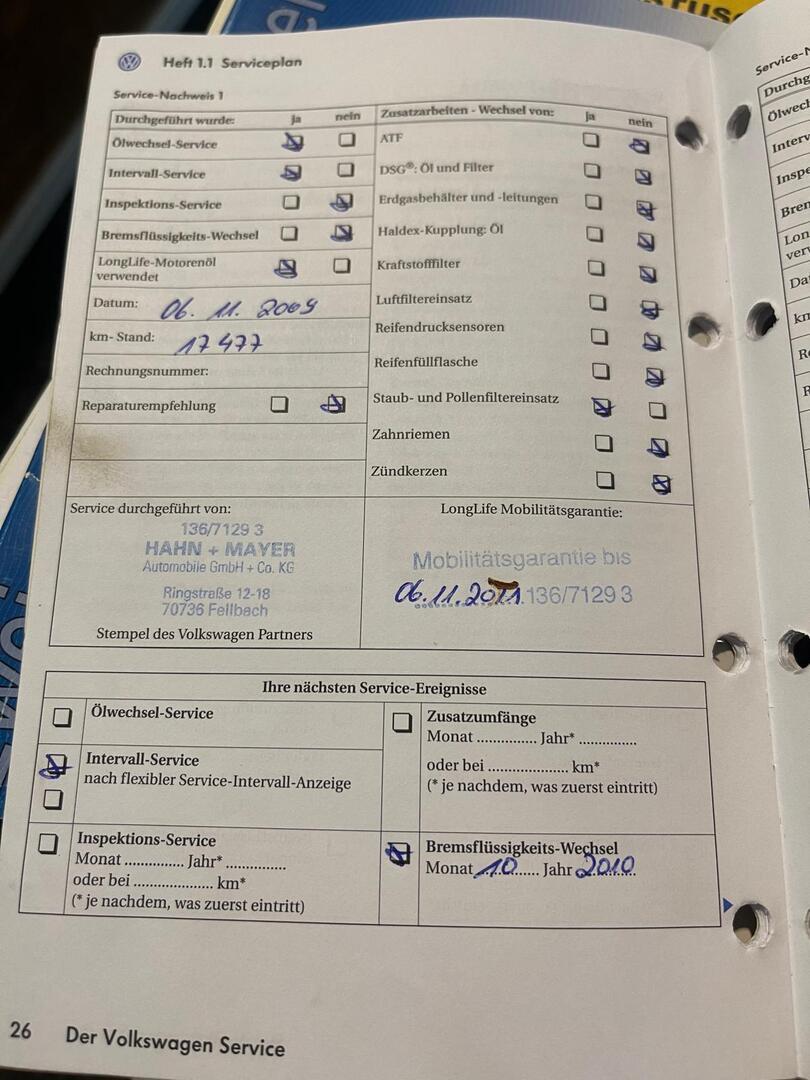 Heft 1.1 Serviceplan
Service-Nachweis 1
Durchgeführt wurde: ja nein
Ölwechsel-Service
Intervall-Service
Inspektions-Service
Bremsflüssigkeits-Wechsel
LongLife-Motorenöl
verwendet
Datum: 06. 11. 2009
km- Stand: 17 477
Rechnungsnummer:
Reparaturempfehlung
Zusatzarbeiten - Wechsel von: ja nein
ATF
DSG®: Öl und Filter
Erdgasbehälter und -leitungen
Haldex-Kupplung: Öl
Kraftstofffilter
Luftfiltereinsatz
Reifendrucksensoren
Reifenfüllflasche
Staub- und Pollenfiltereinsatz
Zahnriemen
Zündkerzen
Service durchgeführt von:
136/7129 3
HAHN + MAYER
Automobile GmbH + Co. KG
Ringstraße 12-18
70736 Fellbach
Stempel des Volkswagen Partners
LongLife Mobilitätsgarantie:
Mobilitätsgarantie bis
06.11.2011 136/7129 3
Ihre nächsten Service-Ereignisse
Ölwechsel-Service
Intervall-Service
nach flexibler Service-Intervall-Anzeige
Inspektions-Service
Monat .............. Jahr* ..............
oder bei .................... km*
(* je nachdem, was zuerst eintritt)
Zusatzumfänge
Monat .............. Jahr* ..............
oder bei .................... km*
(* je nachdem, was zuerst eintritt)
Bremsflüssigkeits-Wechsel
Monat 10 Jahr 2010
26 Der Volkswagen Service
Service-N
Durchg
Ölwech
Interv
Inspe
Bren
Lon
ver
Da
km